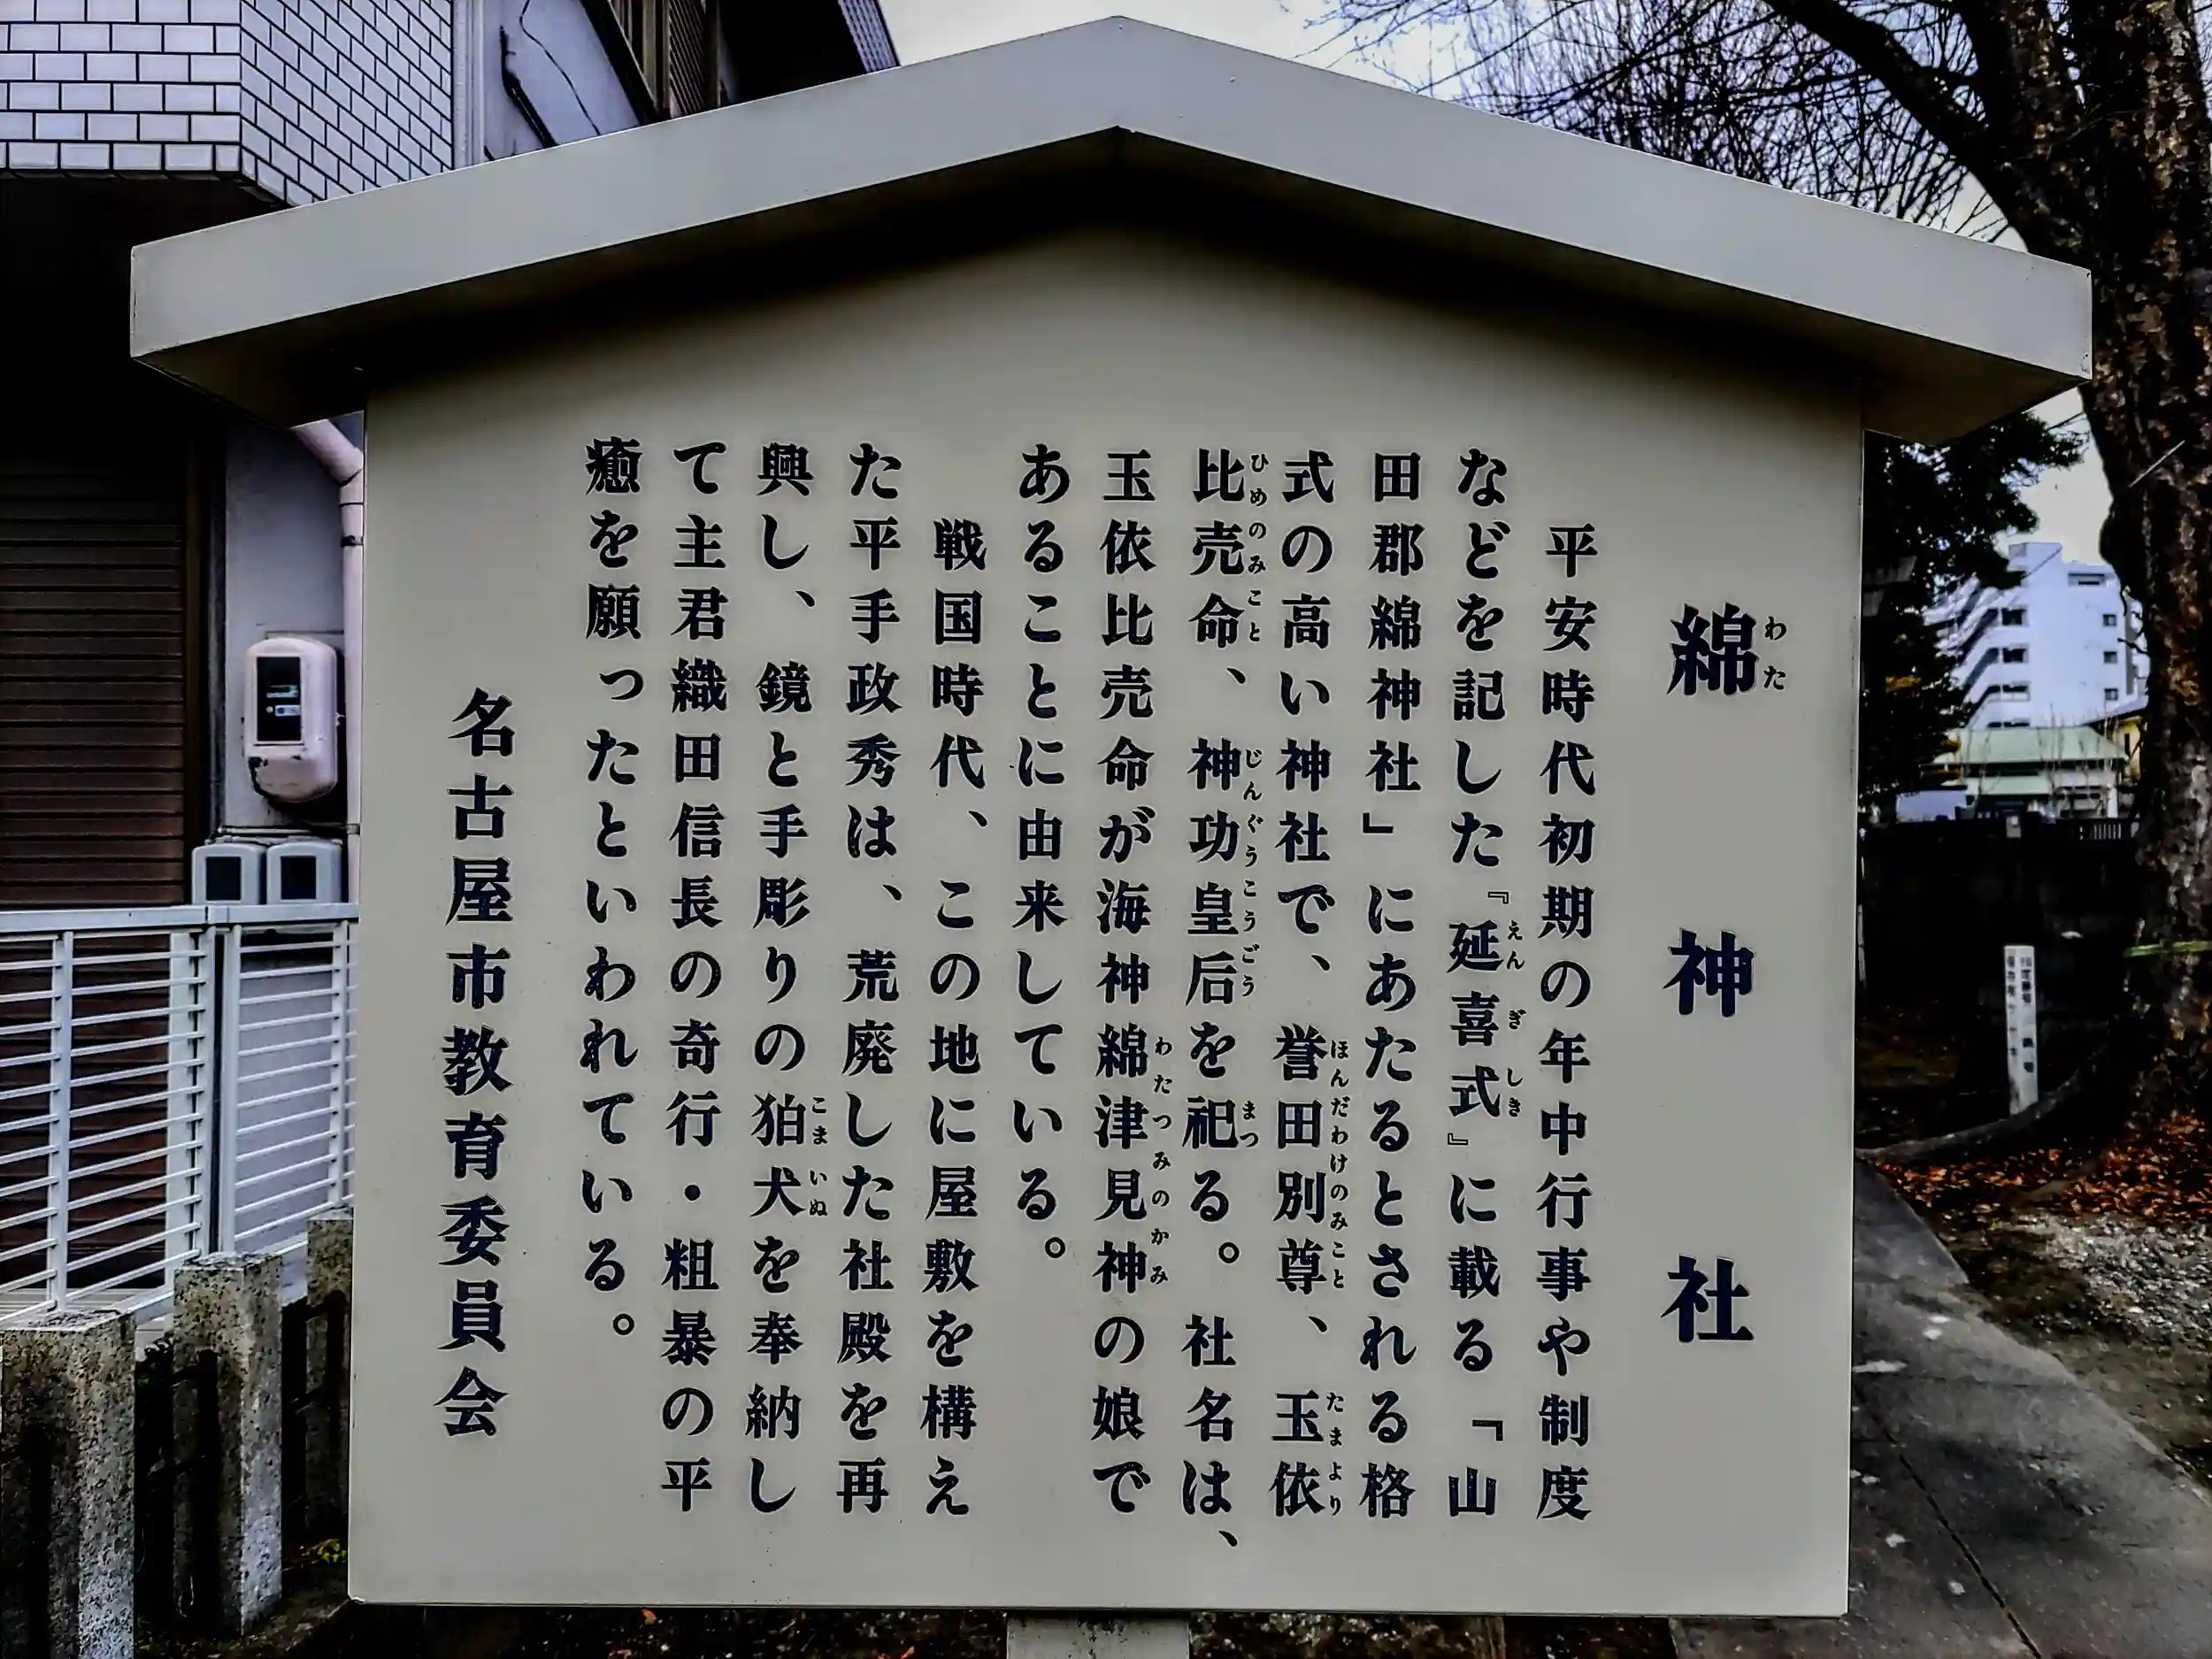 綿神社
わた
平安時代初期の年中行事や制度
などを記した『延喜式』に載る「山
えんぎしき
田郡綿神社」にあたるとされる格
式の高い神社で、誉田別尊、玉依
ほんだわけのみこと たまより
比売命、神功皇后を祀る。社名は、
ひめのみこと じんぐうこうごう まつ
玉依比売命が海神綿津見神の娘で
わたつみのかみ
あることに由来している。
戦国時代、この地に屋敷を構え
た平手政秀は、荒廃した社殿を再
興し、鏡と手彫りの狛犬を奉納し
こまいぬ
て主君織田信長の奇行・粗暴の平
癒を願ったといわれている。
名古屋市教育委員会